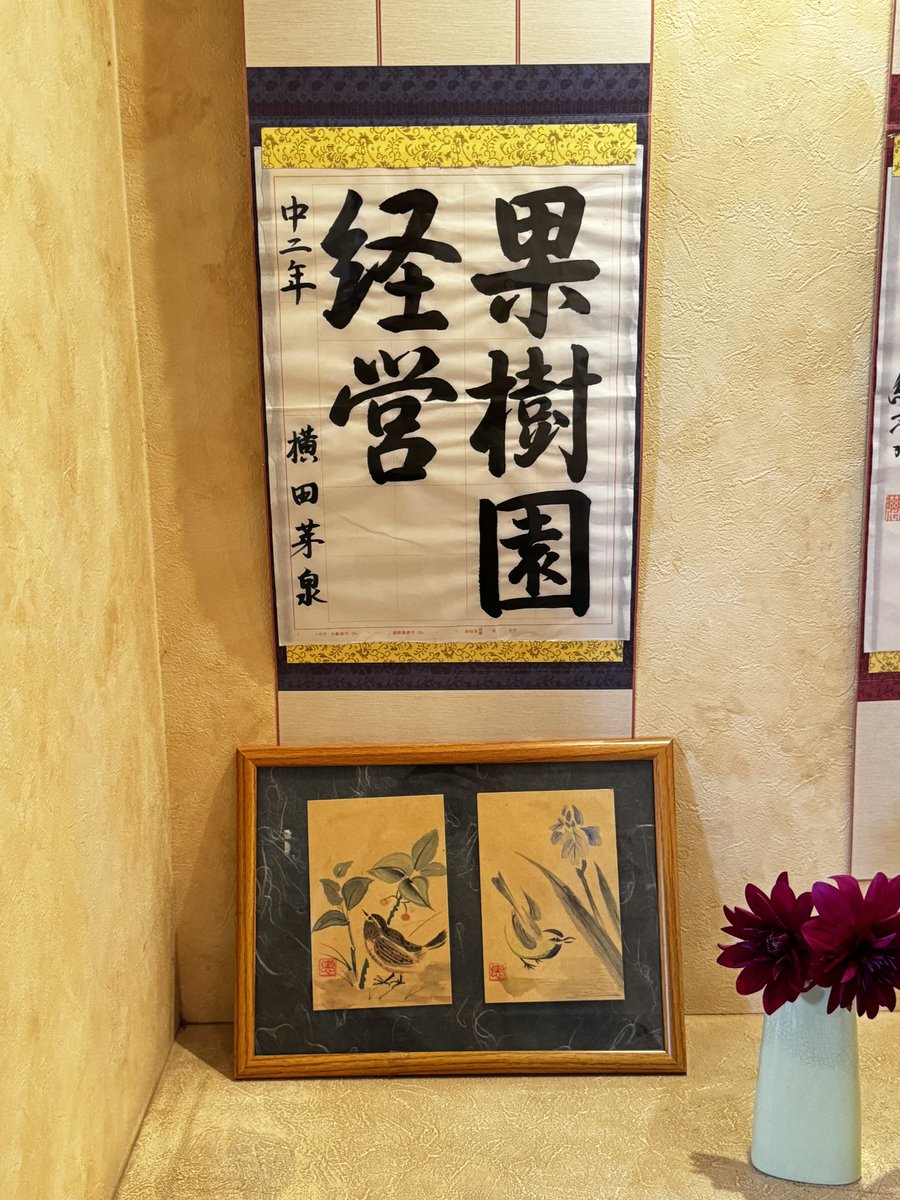 果樹園
経営
中二年 横田芽泉